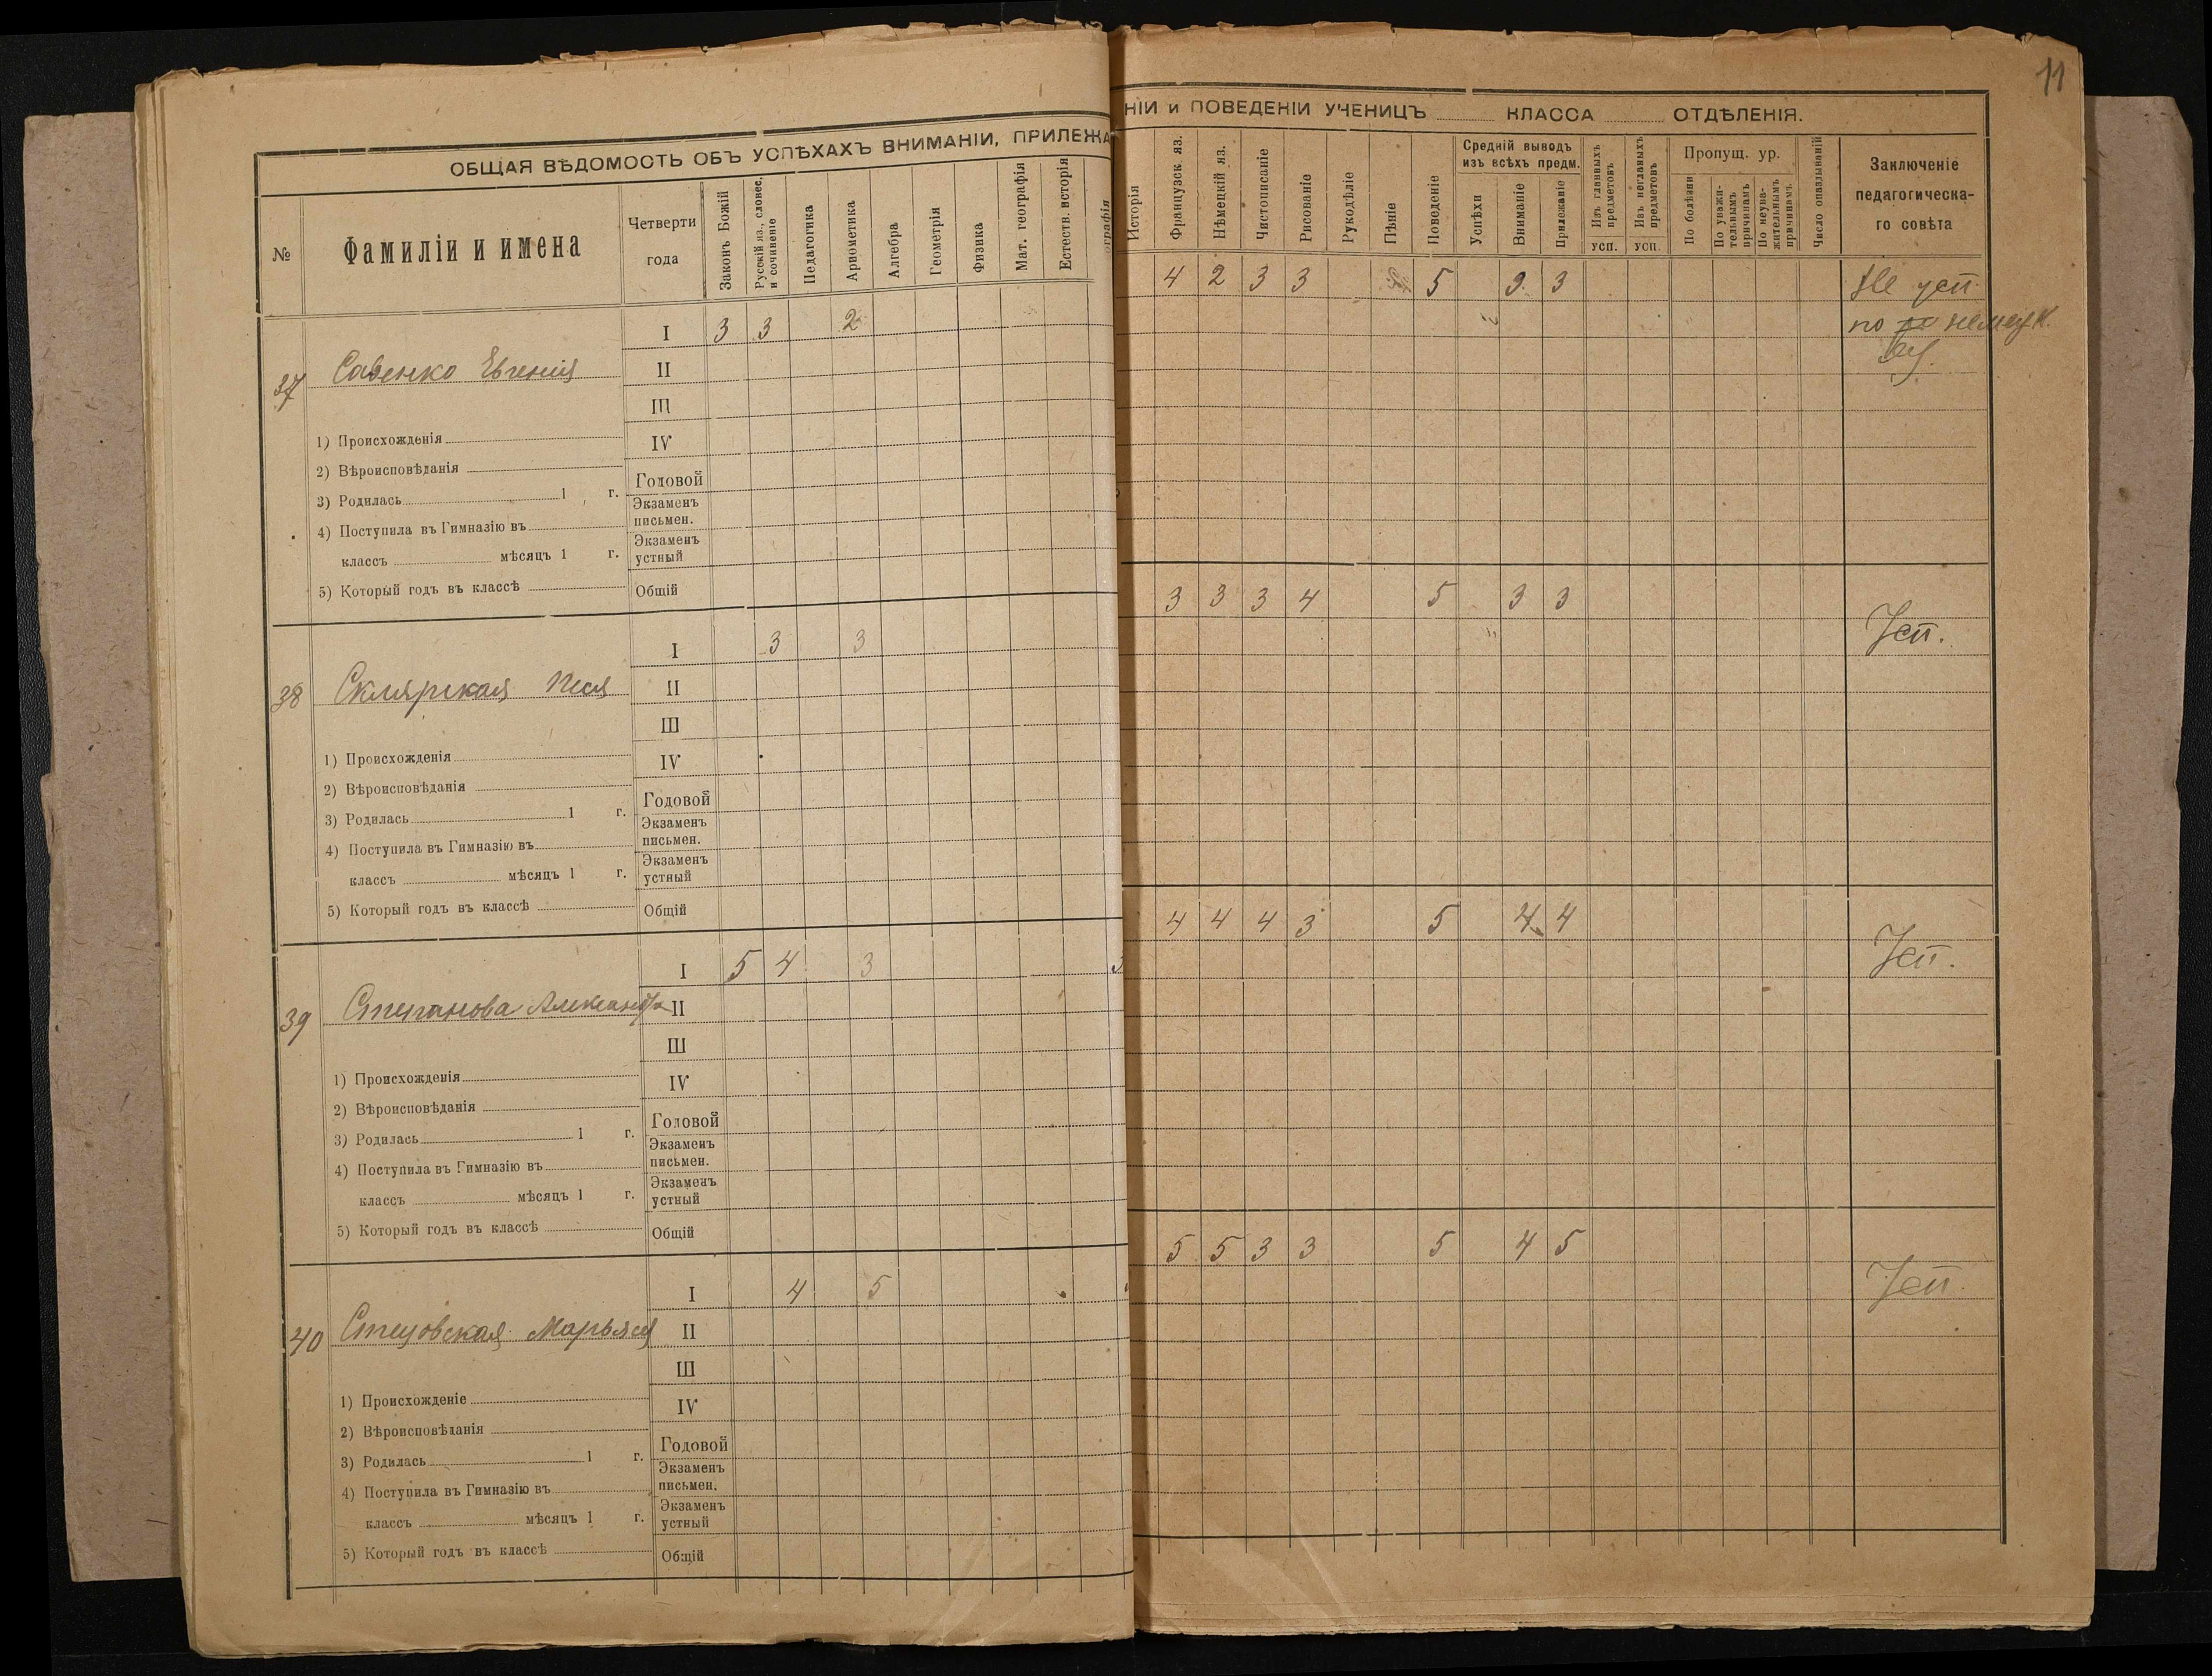 11
ОБЩАЯ ВѢДОМОСТЬ ОБЪ УСПѢХАХЪ ВНИМАНІИ, ПРИЛЕЖА
НІИ и ПОВЕДЕНІИ УЧЕНИЦЪ КЛАССА ОТДѢЛЕНІЯ.
№
Фамиліи и имена
Четверти
года
Законъ Божій
Русскій яз., словес.
и сочиненіе
Педагогика
Ариѳметика
Алгебра
Геометрія
Физика
Мат. географія
Естеств. исторія
ографія
Исторія
Французск яз.
Нѣмецкій яз.
Чистописаніе
Рисованіе
Рукодѣліе
Пѣніе
Поведеніе
Средній выводъ
изъ всѣхъ предм.
Успѣхи
Вниманіе
Прилежаніе
Изъ главныхъ
предметовъ
усп.
Изъ неглавныхъ
предметовъ
усп.
Пропущ. ур.
По болѣзни
По уважи-
тельнымъ
причинамъ
По неува-
жительнымъ
причинамъ.
Число опаздываній
Заключеніе
педагогическа-
го совѣта
37
Савенко Евгенія
I 3 3 2 4 2 3 3 5 3 3
Не усп.
по немецк.
II
III
1) Происхожденія IV
2) Вѣроисповѣданія
Годовой
3) Родилась 1 г.
Экзаменъ
письмен.
4) Поступила въ Гимназію въ
Экзаменъ
устный
классъ мѣсяцъ 1 г.
5) Который годъ въ классѣ Общій
38
Склярская Песя
I 3 3 3 3 3 4 5 3 3
Усп.
II
III
1) Происхожденія IV
2) Вѣроисповѣданія
Годовой
3) Родилась 1 г.
Экзаменъ
письмен.
4) Поступила въ Гимназію въ
Экзаменъ
устный
классъ мѣсяцъ 1 г.
5) Который годъ въ классѣ Общій
39
Степанова Александра
I 5 4 3 3 4 4 4 3 5 4 4
Усп.
II
III
1) Происхожденія IV
2) Вѣроисповѣданія
Годовой
3) Родилась 1 г.
Экзаменъ
письмен.
4) Поступила въ Гимназію въ
Экзаменъ
устный
классъ мѣсяцъ 1 г.
5) Который годъ въ классѣ Общій
40
I 4 5 5 5 3 3 5 4 5
Усп.
II
III
1) Происхожденіе IV
2) Вѣроисповѣданія
Годовой
3) Родилась 1 г.
Экзаменъ
письмен.
4) Поступила въ Гимназію въ
Экзаменъ
устный
классъ мѣсяцъ 1 г.
5) Который годъ въ классѣ Общій